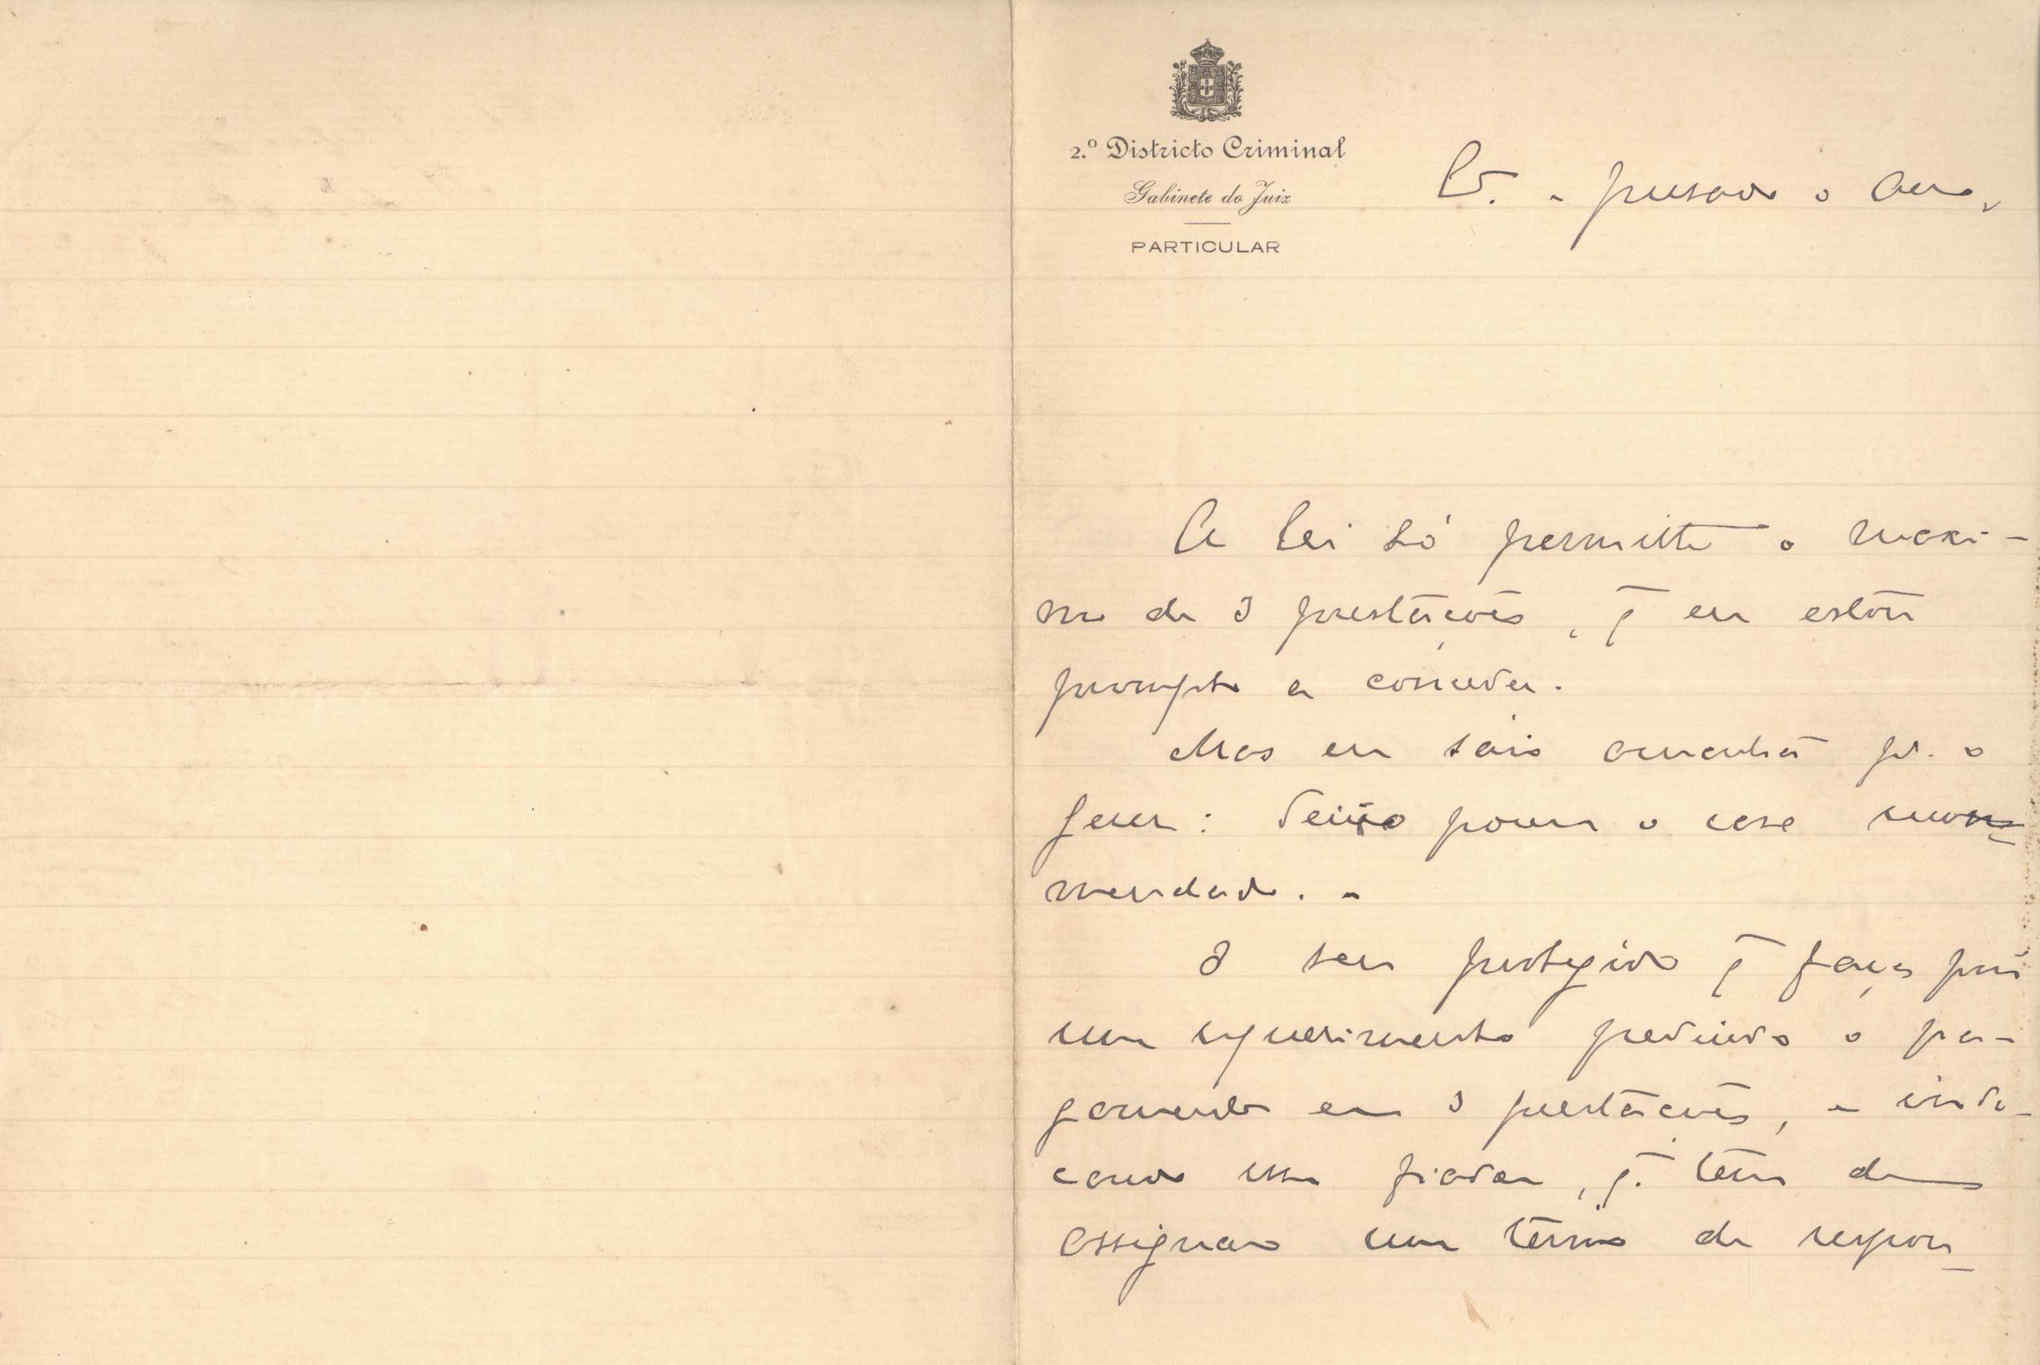 2.º Districto Criminal
Gabinete do Juiz
PARTICULAR
A lei só permitte o maxi-
mo de 3 prestações, q̃ eu estou
prompto a conceder.
Mas eu saio amanhã p.ª o
Gerez: deixo porem o caso recom-
mendado. -
O seu protegido q̃ faça pois
um requerimento pedindo o pa-
gamento em 3 prestações, e indi-
cando fiador, q̃ tem de
assignar um termo de respon-